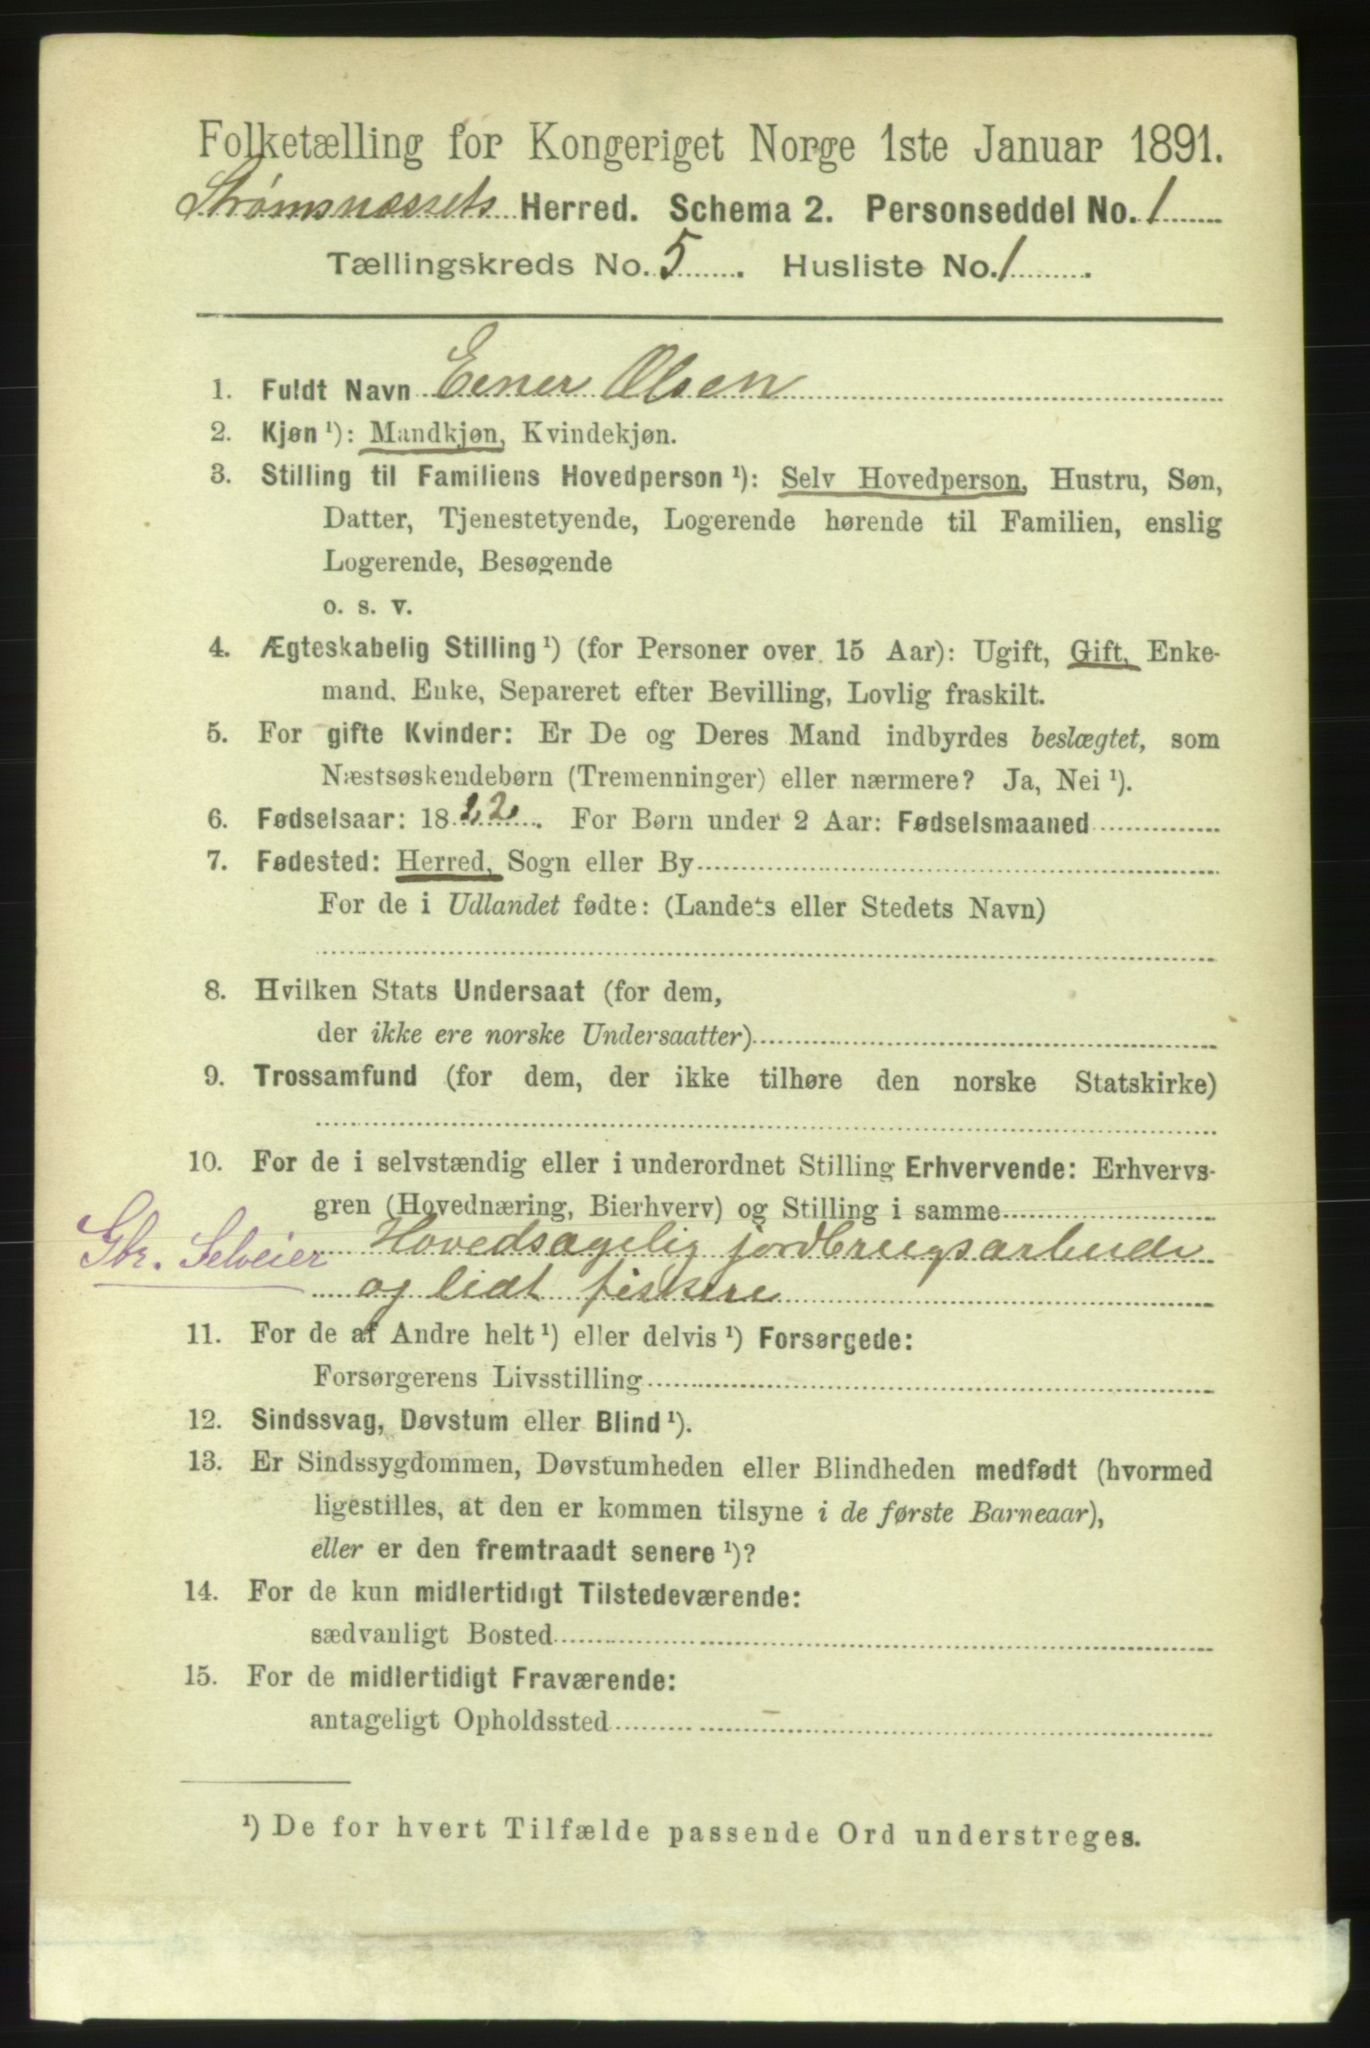 Folketælling for Kongeriget Norge 1ste Januar 1891.
Strømsnæssets Herred. Schema 2. Personseddel No. 1
Tællingskreds No. 5. Husliste No. 1.
1. Fuldt Navn Eener Olsen
2. Kjøn ¹): Mandkjøn, Kvindekjøn.
3. Stilling til Familiens Hovedperson ¹): Selv Hovedperson, Hustru, Søn,
Datter, Tjenestetyende, Logerende hørende til Familien, enslig
Logerende, Besøgende
o. s. v.
4. Ægteskabelig Stilling ¹) (for Personer over 15 Aar): Ugift, Gift, Enke-
mand, Enke, Separeret efter Bevilling, Lovlig fraskilt.
5. For gifte Kvinder: Er De og Deres Mand indbyrdes beslægtet, som
Næstsøskendebørn (Tremenninger) eller nærmere? Ja, Nei ¹).
6. Fødselsaar: 1822. For Børn under 2 Aar: Fødselsmaaned
7. Fødested: Herred, Sogn eller By
For de i Udlandet fødte: (Landets eller Stedets Navn)
8. Hvilken Stats Undersaat (for dem,
der ikke ere norske Undersaatter)
9. Trossamfund (for dem, der ikke tilhøre den norske Statskirke)
10. For de i selvstændig eller i underordnet Stilling Erhvervende: Erhvervs-
gren (Hovednæring, Bierhverv) og Stilling i samme
Gbr. Selveier Hovedsagelig jordbrugsarbeide
og lidt fiskere
11. For de af Andre helt ¹) eller delvis ¹) Forsørgede:
Forsørgerens Livsstilling
12. Sindssvag, Døvstum eller Blind ¹).
13. Er Sindssygdommen, Døvstumheden eller Blindheden medfødt (hvormed
ligestilles, at den er kommen tilsyne i de første Barneaar),
eller er den fremtraadt senere ¹)?
14. For de kun midlertidigt Tilstedeværende:
sædvanligt Bosted
15. For de midlertidigt Fraværende:
antageligt Opholdssted
¹) De for hvert Tilfælde passende Ord understreges.